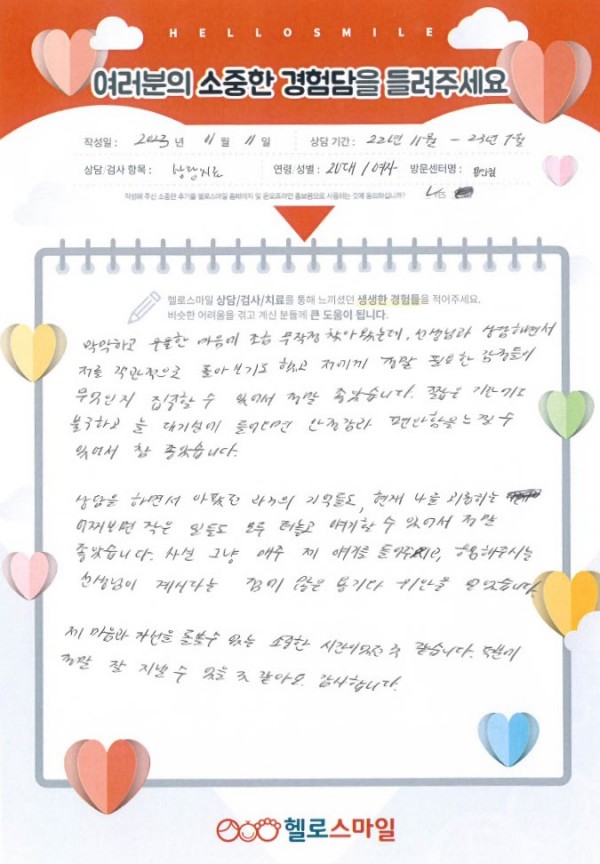 HELLOSMILE
여러분의 소중한 경험담을 들려주세요
작성일 : 2023 년 11 월 11 일 상담 기간 : 22년 11월 - 23년 1월
상담/검사 항목 : 상담치료 연령/성별 : 20대 / 여자 방문센터명 :
작성해 주신 소중한 후기를 헬로스마일 홈페이지 및 온오프라인 홍보용으로 사용하는 것에 동의하십니까? YES
헬로스마일 상담/검사/치료를 통해 느끼셨던 생생한 경험들을 적어주세요.
비슷한 어려움을 겪고 계신 분들께 큰 도움이 됩니다.
막막하고 우울한 마음에 조금 무작정 찾아왔는데, 선생님과 상담하면서
저를 객관적으로 돌아보기도 했고 저에게 정말 필요한 감정들이
무엇인지 집중할 수 있어서 정말 좋았습니다. 짧은 기간에도
불구하고 늘 대기실에 들어오면 안정감과 편안함을 느낄 수
있어서 참 좋았습니다.
상담을 하면서 아팠던 과거의 기억들도, 현재 나를 괴롭히는
어쩌보면 작은 일들도 모두 터놓고 얘기할 수 있어서 정말
좋았습니다. 사실 그냥 매주 제 얘기를 들어주시고, 응원해주시는
선생님이 계시다는 점이 많은 용기와 위안을 얻었습니다.
제 마음과 자신을 돌볼수 있는 소중한 시간이었던 것 같습니다. 덕분에
정말 잘 지낼 수 있을 것 같아요. 감사합니다.
헬로스마일